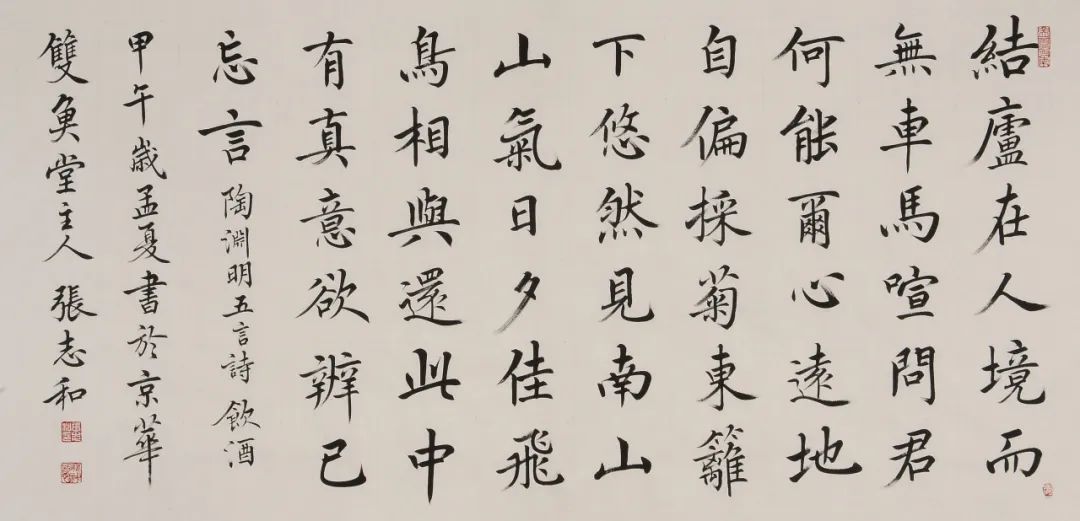 結廬在人境而
無車馬喧問君
何能爾心遠地
自偏採菊東籬
下悠然見南山
山氣日夕佳飛
鳥相與還此中
有真意欲辨已
忘言 陶淵明五言詩 飲酒
甲午歲孟夏書於京華
雙魚堂主人 張志和